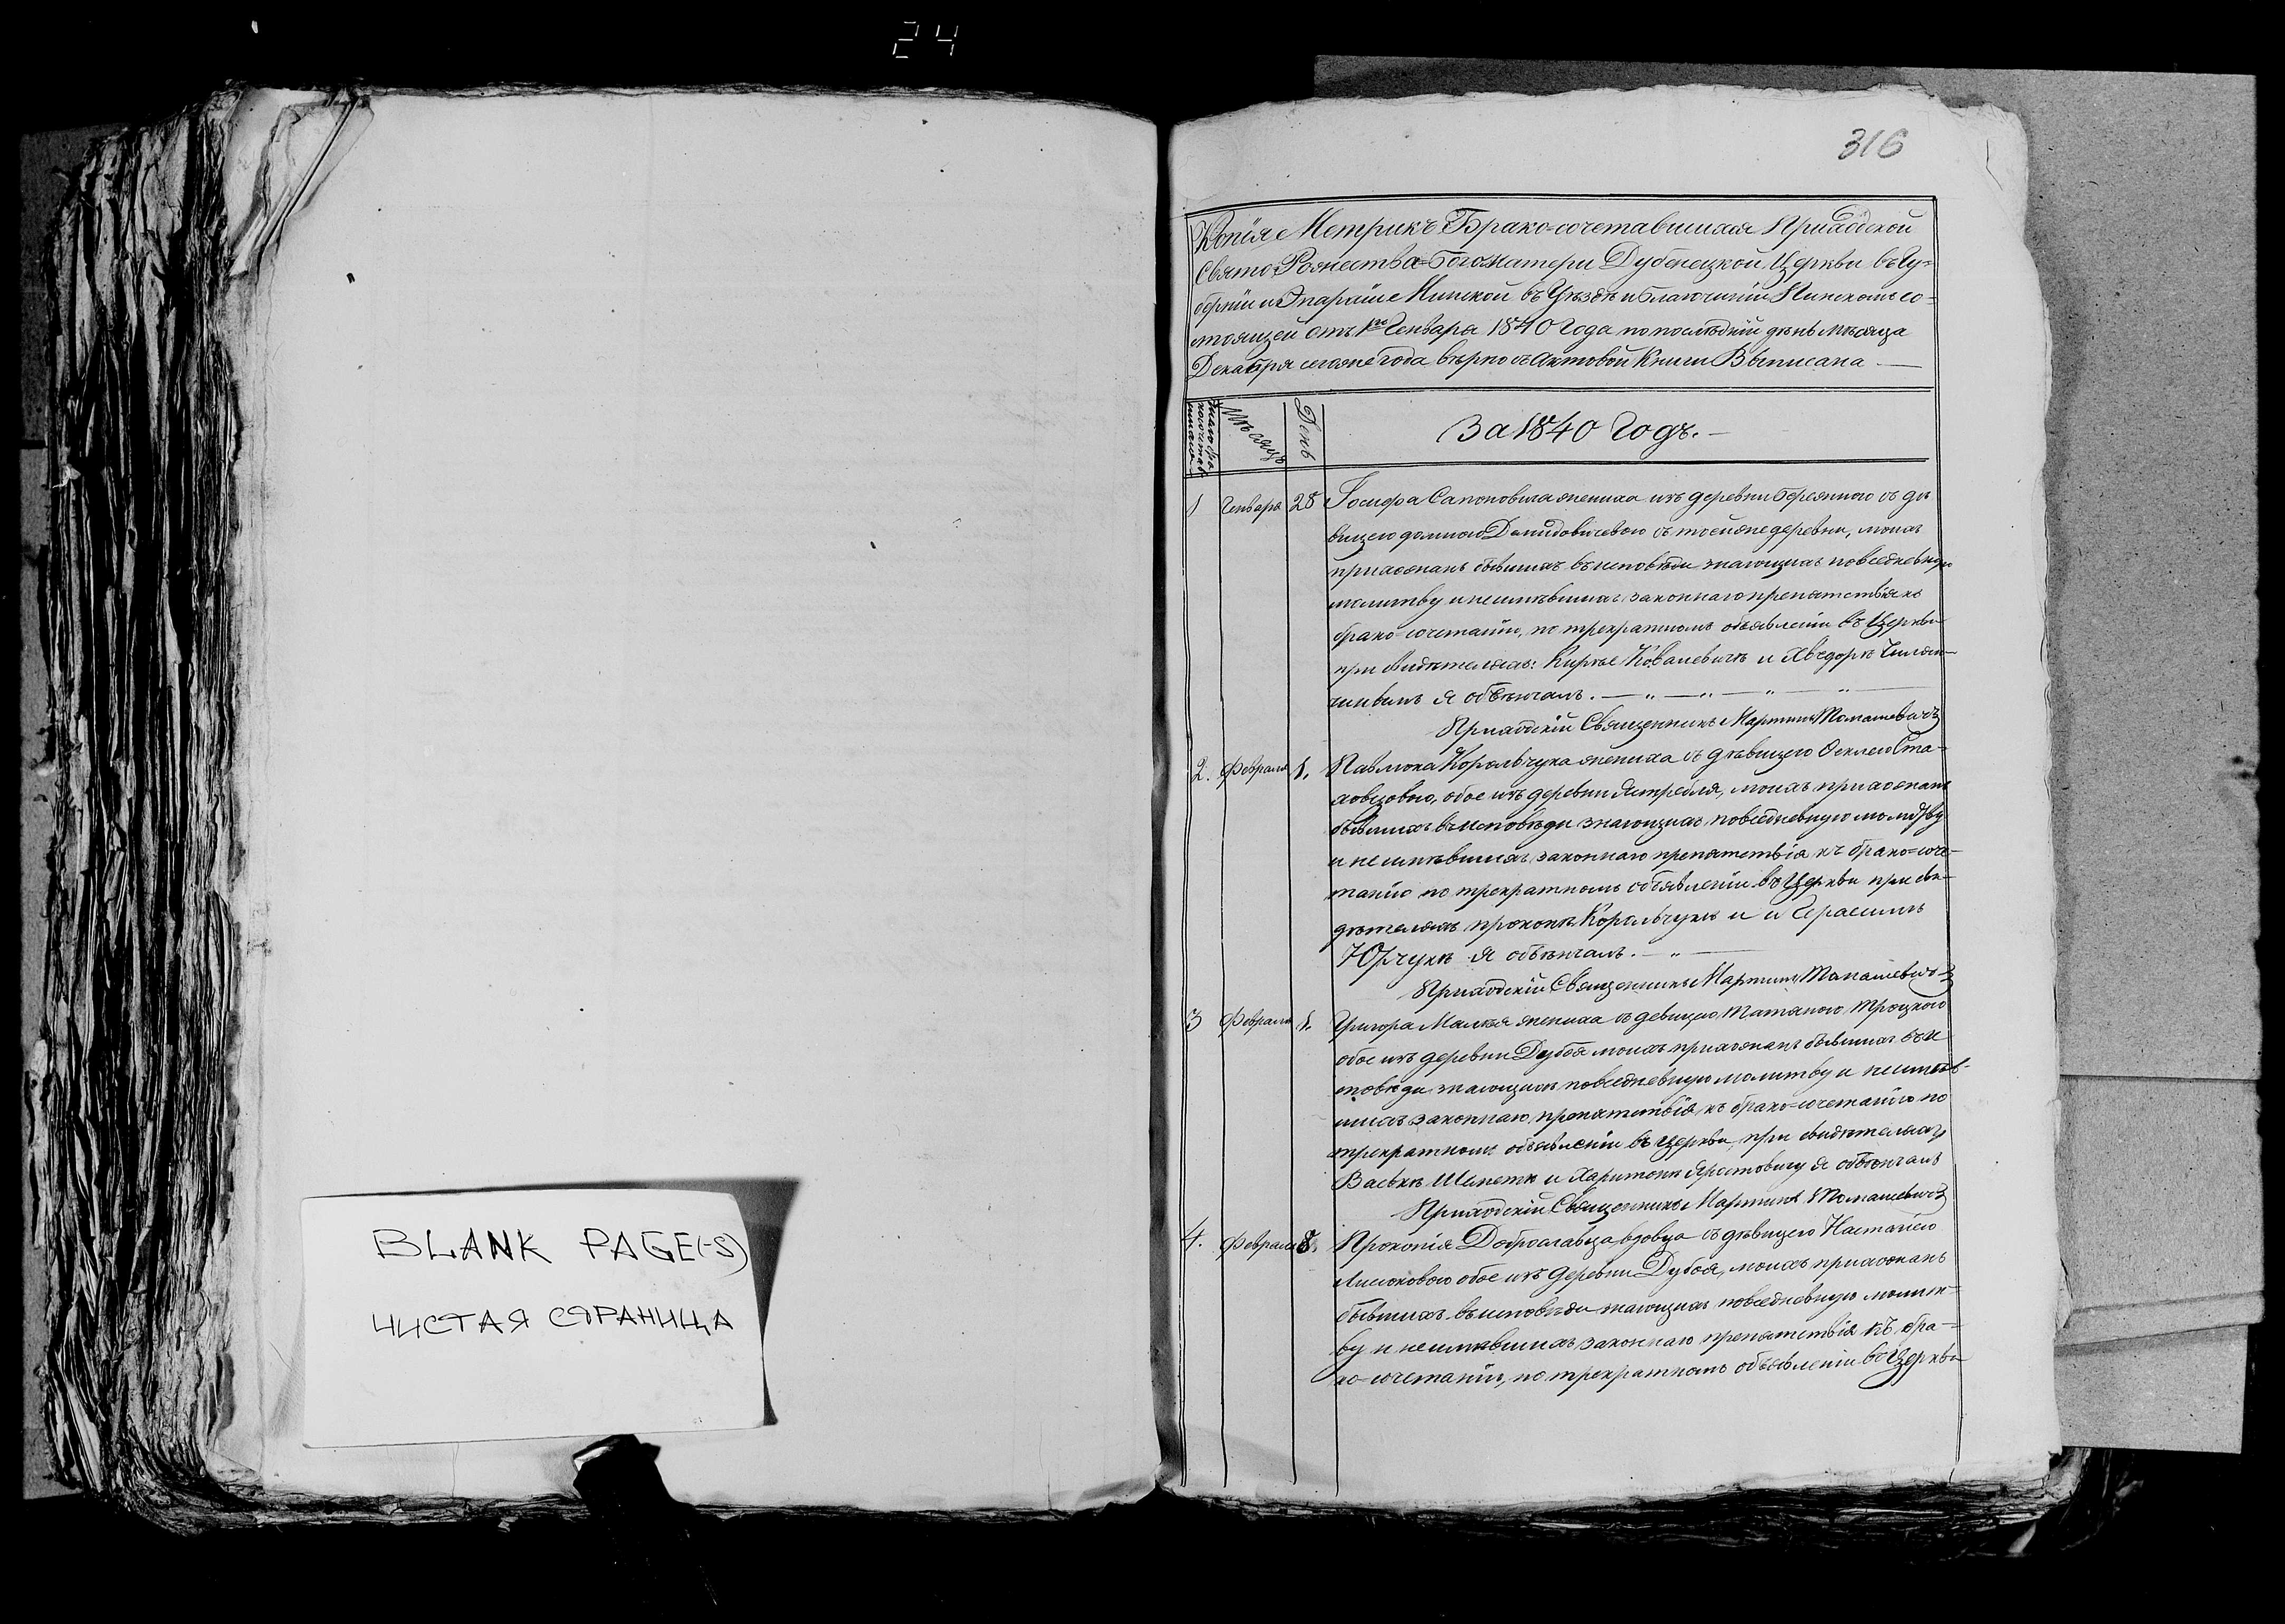 24
316
Копія Метрикъ Брако-сочетавшихся Приходской
Свято Рожества-Богоматери Дубенецкой Церкви въ Гу-
берніи и Эпархіи Минской въ Уѣздѣ и благочиніи Пинскомъ со-
тоящей отъ 1го Генваря 1840 Года по послѣдній день мѣсяца
Декабря сегоже года вѣрно съ Актовой Книги Выписана
Мѣсяцъ
День
За 1840 Годъ.
1 Генваря 28 Іосифа Сапоновича жениха изъ деревни Бережного съ дѣ
вицею Домною Демидовичевою съ тоейже деревни, моихъ
прихожанъ бывшихъ въ исповѣди знающихъ повседневную
молитву и неимѣвшихъ законнаго препятствія къ
брако-сочетанію, по трекратномъ объявленіи въ Церкви
при свидѣтеляхъ: Кирыле Ковалевичъ и Хведоръ
я обвѣнчалъ.
Приходскій Священникъ Мартинъ Томашевичъ
2. Февраля 1. Павлюка Корольчука жениха съ дѣвицею Феклею Ста-
ховцовою, обое изъ деревни Ястребля, моихъ прихожанъ
бывшихъ въ исповѣди знающихъ повседневную молитву
и неимѣвшихъ законнаго препятствія къ брако-соче-
танію по трекратномъ объявленіи въ Церкви при сви-
дѣтеляхъ прокопъ Корольчукъ и и Герасимъ
Юрчукъ я обвѣнчалъ.
Приходскій Священникъ Мартинъ Томашевичъ
3 Февраля 1. Григора жениха съ девицею Татяною Троцкою
обое изъ деревни Дубоя моихъ прихожанъ бывшихъ въ и
повѣди знающихъ повседневную молитву и неимѣв-
шихъ законнаго препятствія къ брако-сочетанію по
трекратномъ объявленіи въ Церкви, при свидѣтеляхъ
Васькѣ Шепетѣ и Харитонѣ я обвѣнчалъ
Приходскій Священникъ Мартинъ Томашевичъ
4. Февраля 8. Прокопія Доброславца вдовца съ дѣвицею Настасіею
Лисюковою обое изъ деревни Дубоя, моихъ прихожанъ
бывшихъ въ исповѣди знающихъ повседневную молит-
ву и неимѣвшихъ законнаго препятствія къ бра-
ко-сочетанію, по трекратномъ объявленіи въ Церкви
BLANK PAGE(-S)
ЧИСТАЯ СТРАНИЦА